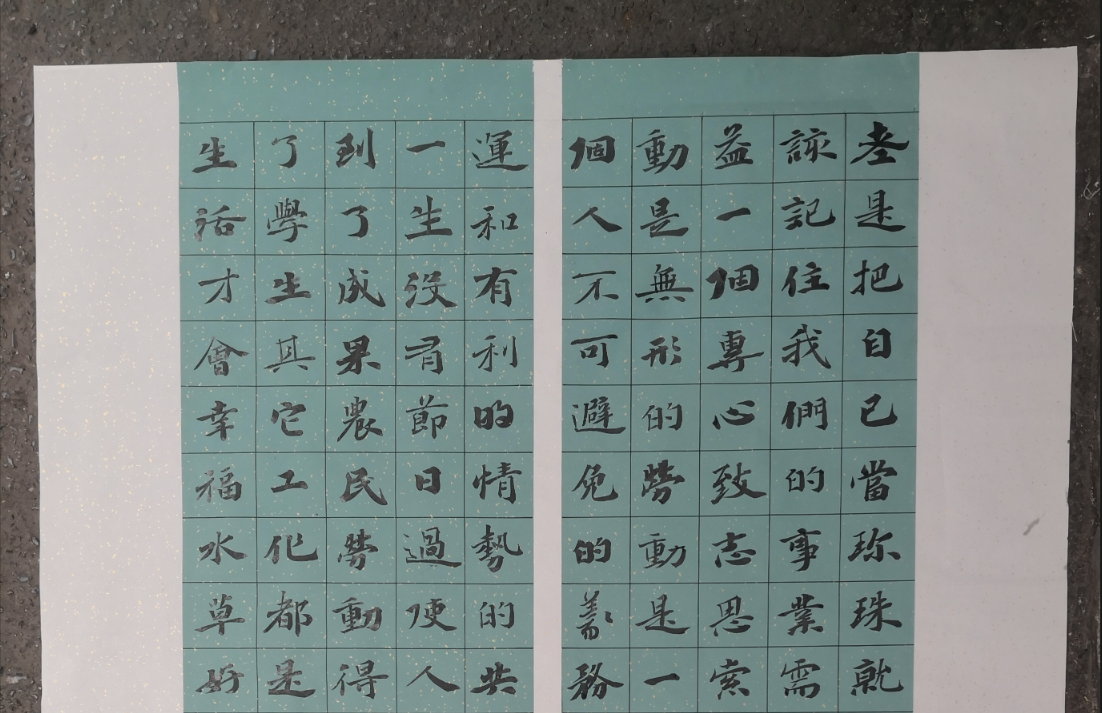 老是把自己當珍珠就
詠記住我們的事業需
益一個專心致志思索
動是無形的勞動是一
個人不可避免的義務
運和有利的情勢的共
一生没有節日過便人
到了成果農民勞動得
了學生其它工化都是
生活才會幸福水草